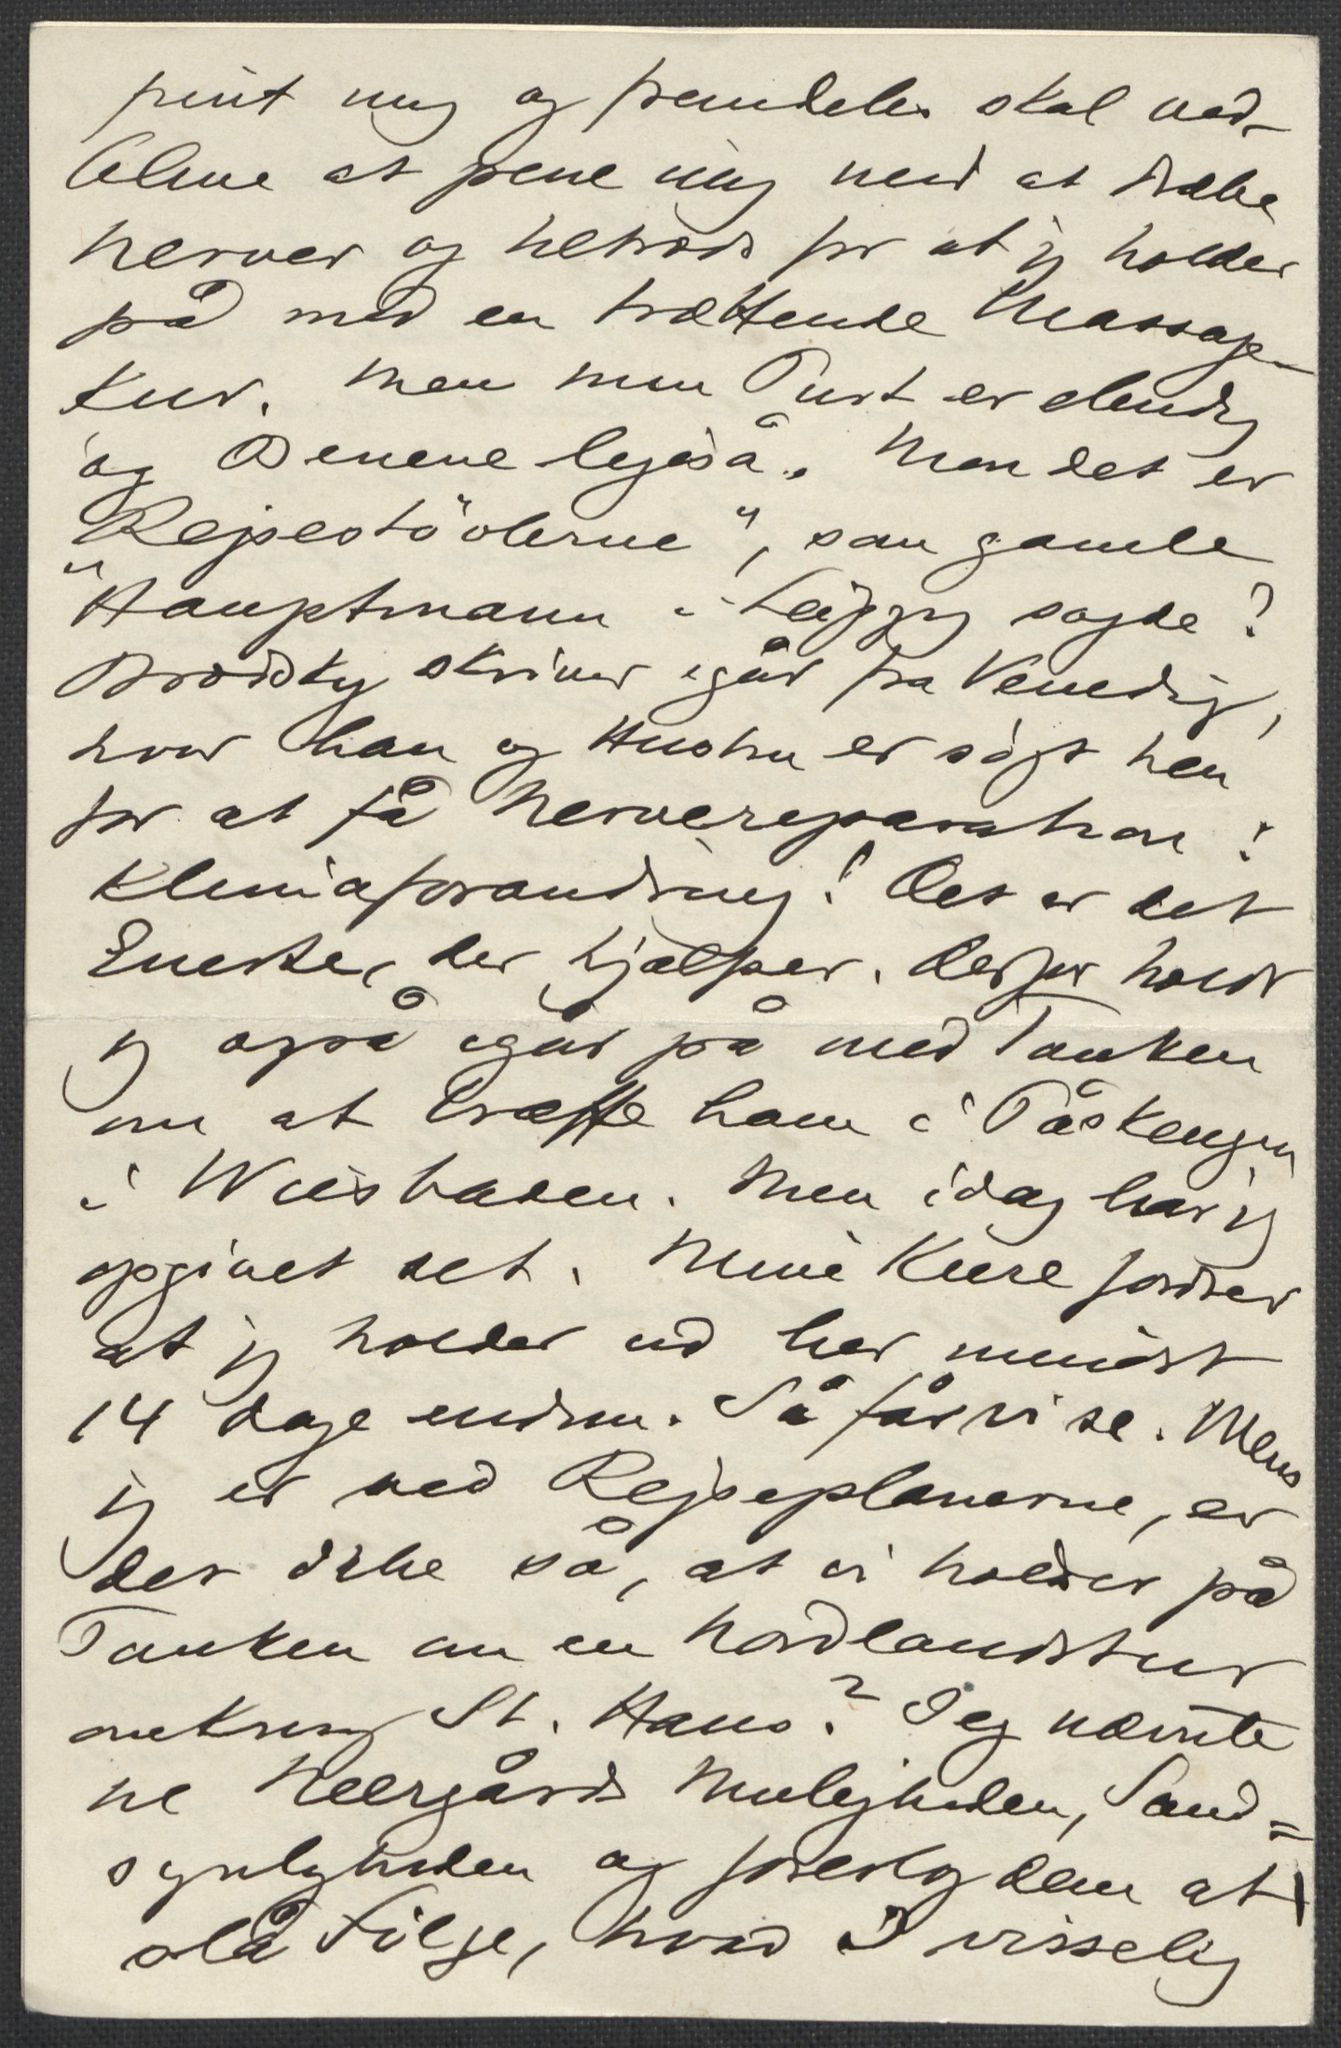 pint mig og fremdeles skal ved-
blive at pine mig med at dræbe
Nerver og tiltrods for at jeg holder
på med en trættende Massage-
kur. Men min Pust er elendig
og Benene ligeså. Men det er
"Rejsestövlerne", som gamle
"Hauptmann i Leipzig sagde!
Brodsky skriver igår fra Venedig,
hvor han og Hustru er søgt hen
for at få Nervereparation:
Klimaforandring! Det er det
Eneste, der hjælper. Derfor holdt
jeg også igår på med Tanken
om at træffe ham i Påskeugen
i Wiesbaden. Men idag har jeg
opgivet det. Mine Kure fordrer
at jeg holder ud her mindst
14 dage endnu. Så får vi se. Mens
jeg er ved Rejseplanerne, er
det ikke så, at vi holder på
Tanken om en Nordlandstur
omkring St. Hans? Jeg nævnte
til Neergårds Muligheden, Sand=
synligheden og foreslog dem at
slå Følge, hvad I visselig